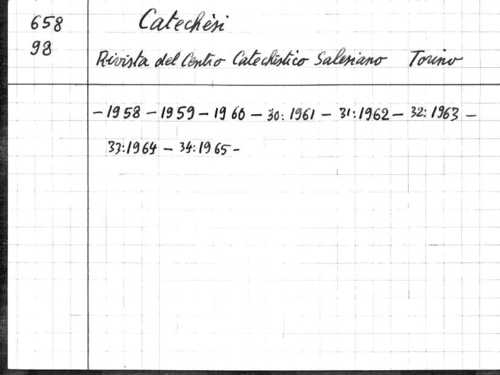 658
98
Catechèsi
Rivista del Centro Catechistico Salesiano Torino
- 1958 - 1959 - 1960 - 30: 1961 - 31: 1962 - 32: 1963 -
33: 1964 - 34: 1965 -